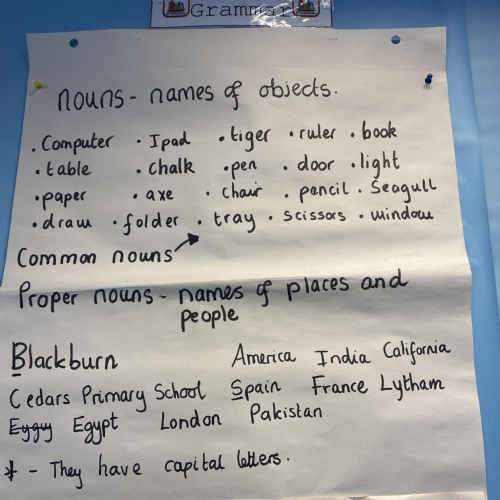 Grammar
nouns - names of objects.
. Computer · Ipad · tiger · ruler · book
· table · chalk · pen · door · light
· paper · axe · chair · pencil · Seagull
· draw · folder · tray · scissors · window
Common nouns
Proper nouns - names of places and
people
Blackburn America India California
Cedars Primary School Spain France Lytham
Eygy Egypt London Pakistan
* - They have capital letters.